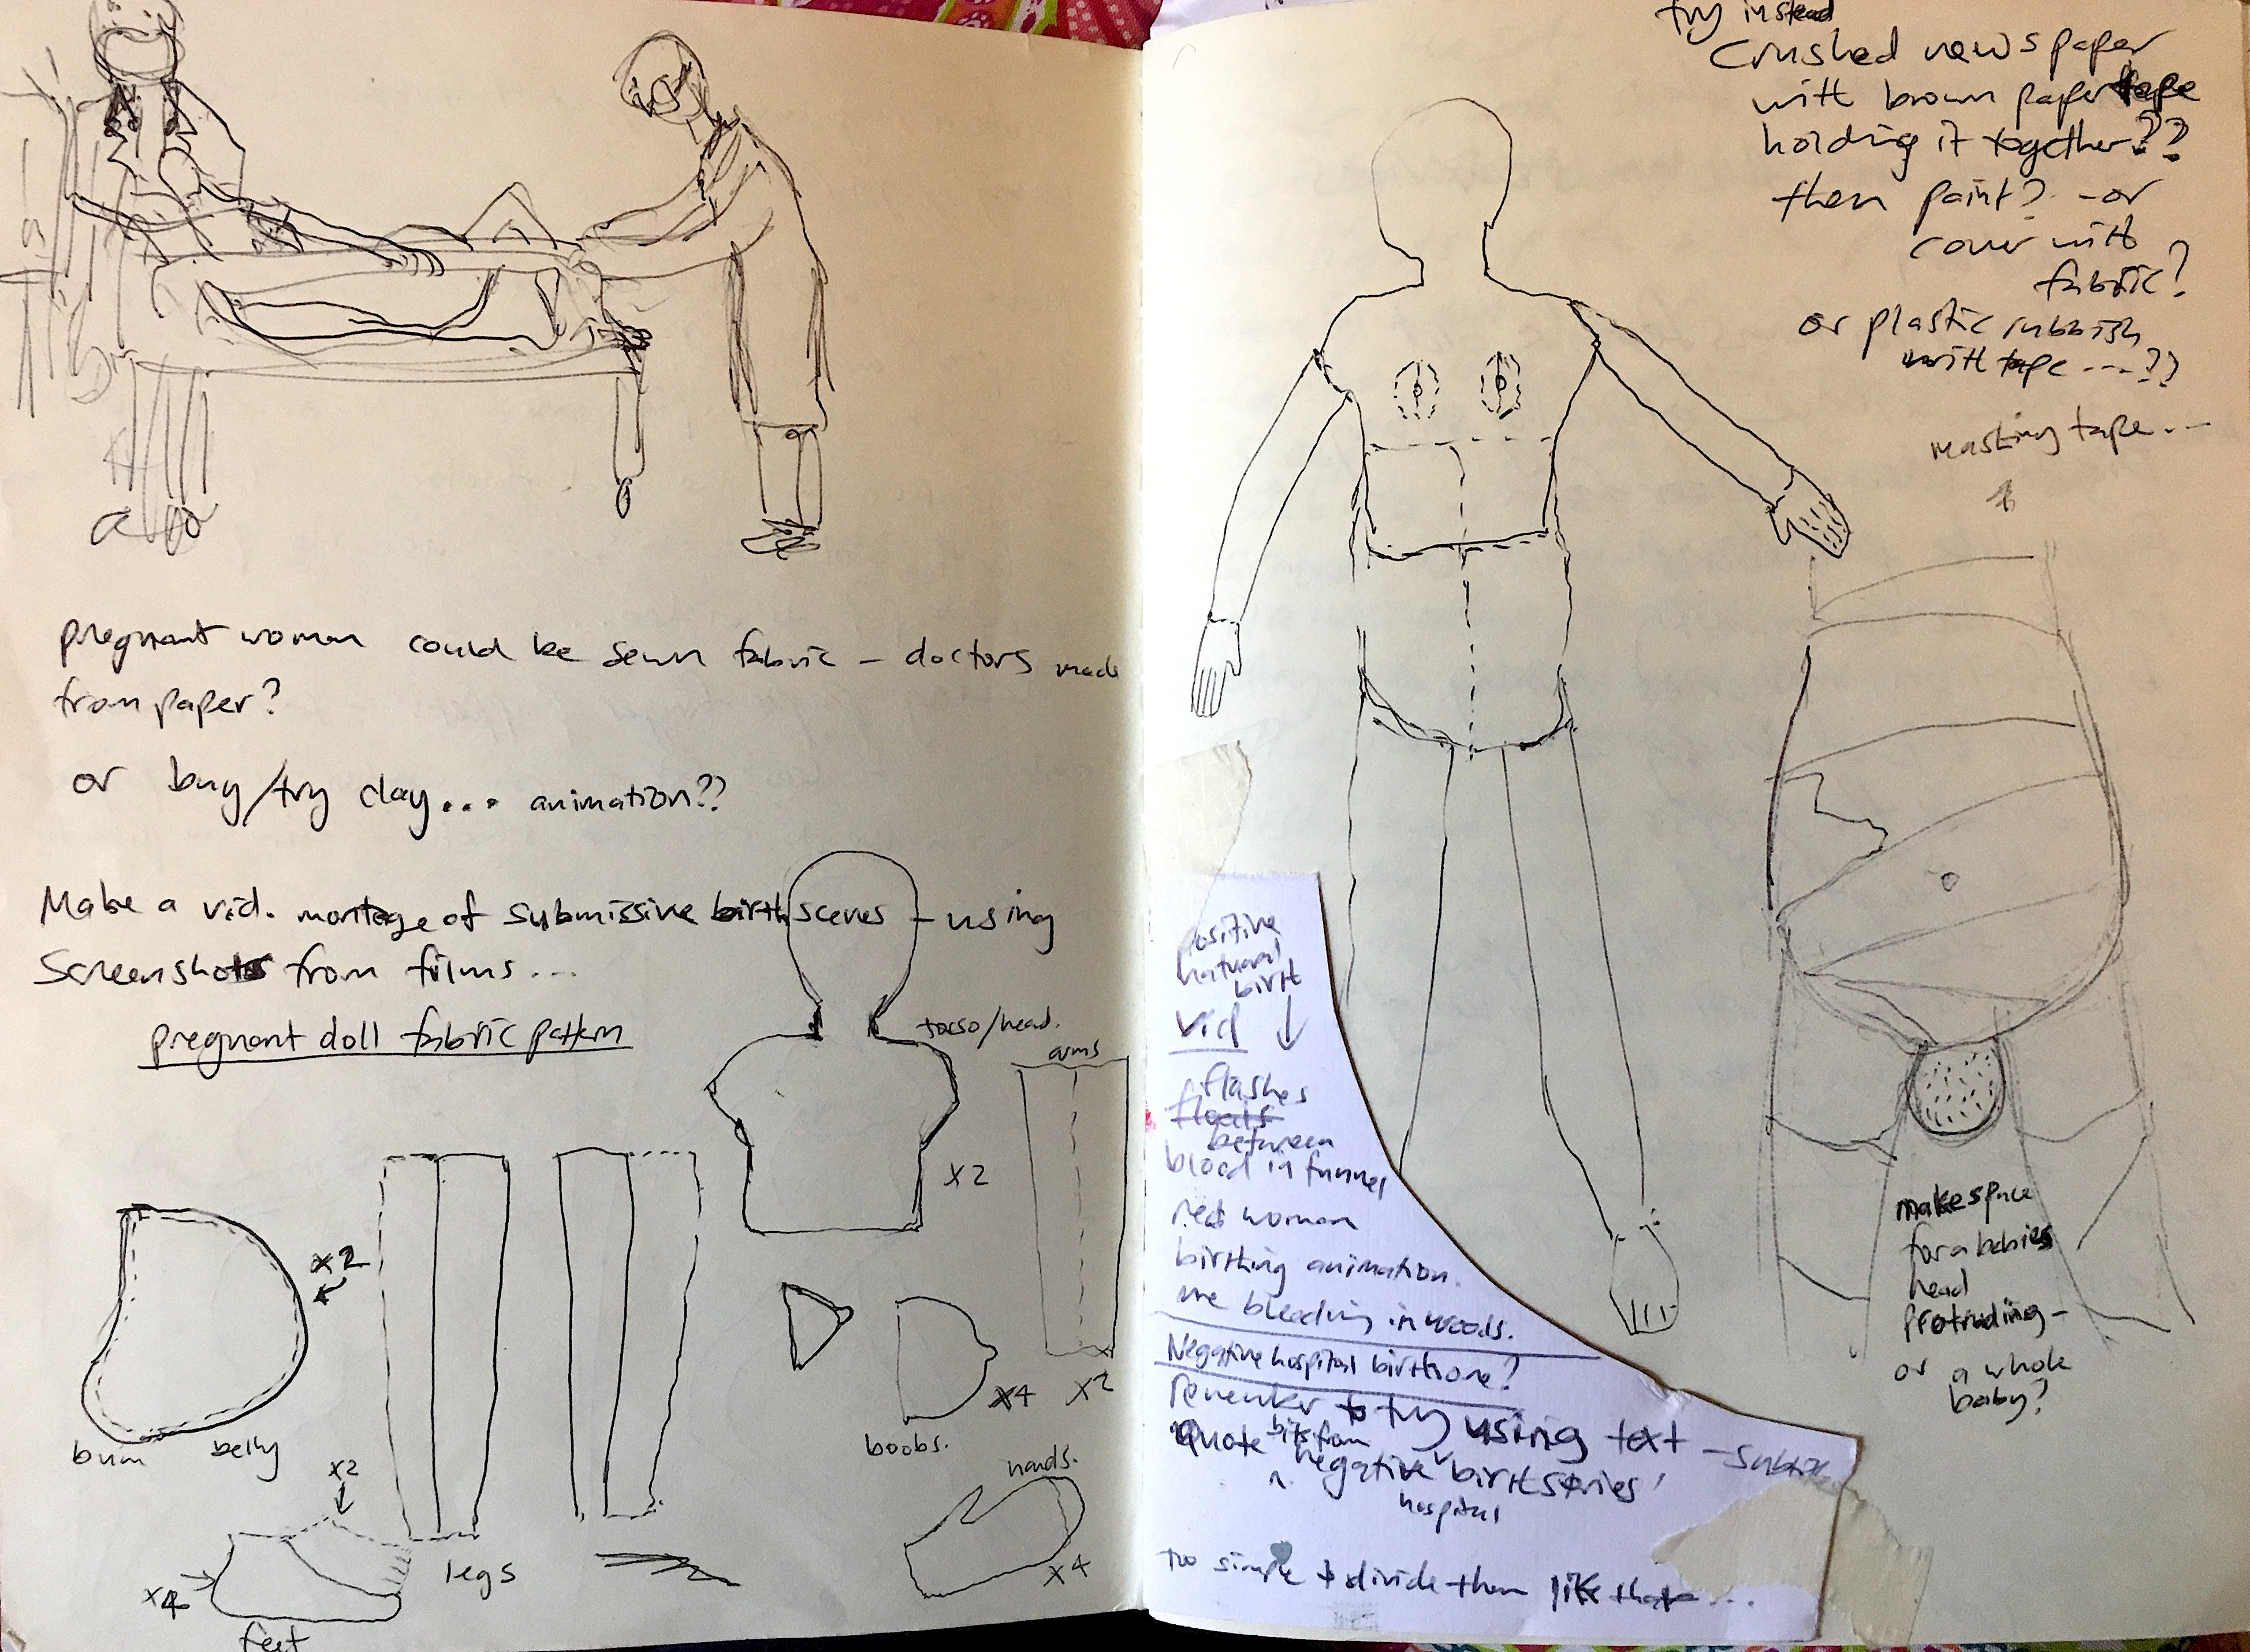 pregnant woman could be sewn fabric – doctors made
from paper?
or buy/try clay... animation??
Make a vid. montage of submissive birth scenes – using
Screenshots from films...
pregnant doll fabric pattern
torso/head.
x2
arms
x2
x2
bum belly
legs
boobs.
x4
hands.
x4
x2
x4
feet
try instead
Crushed newspaper
with brown paper tape
holding it together??
then paint? – or
cover with
fabric?
or plastic rubbish
with tape ---??
masking tape...
make space
for a babies
head
protruding –
or a whole
baby?
positive
natural
birth
vid
flashes
between
blood in funnel
red woman
birthing animation.
me bleeding in woods.
Negative hospital birth one?
remember to try using text –
Quote bits from
negative birth stories'
hospital
too simple to divide them like that...